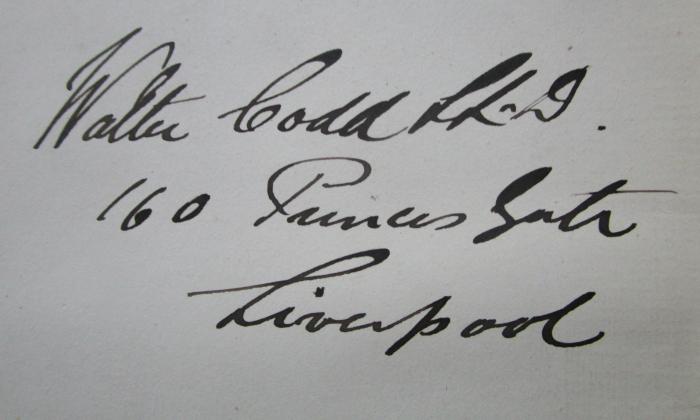 Walter Codd LL.D.
160 Princes Gate
Liverpool